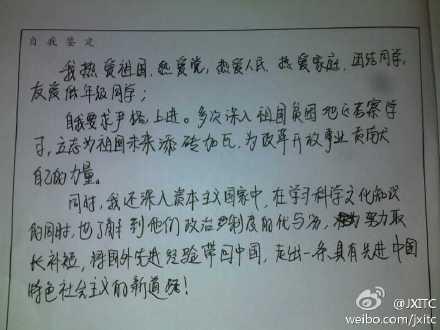 自我鉴定
我热爱祖国、热爱党，热爱人民、热爱家庭、团结同学，
友爱低年级同学；
自我要求严格，上进。多次深入祖国贫困地区考察学
习，立志为祖国未来添砖加瓦，为改革开放事业贡献
自己的力量。
同时，我还深入资本主义国家中，在学习科学文化知识
的同时，也了解到他们政治制度的优与劣，努力取
长补短，将国外先进经验带回中国，走出一条具有先进中国
特色社会主义的新道路！
@JXITC
weibo.com/jxitc